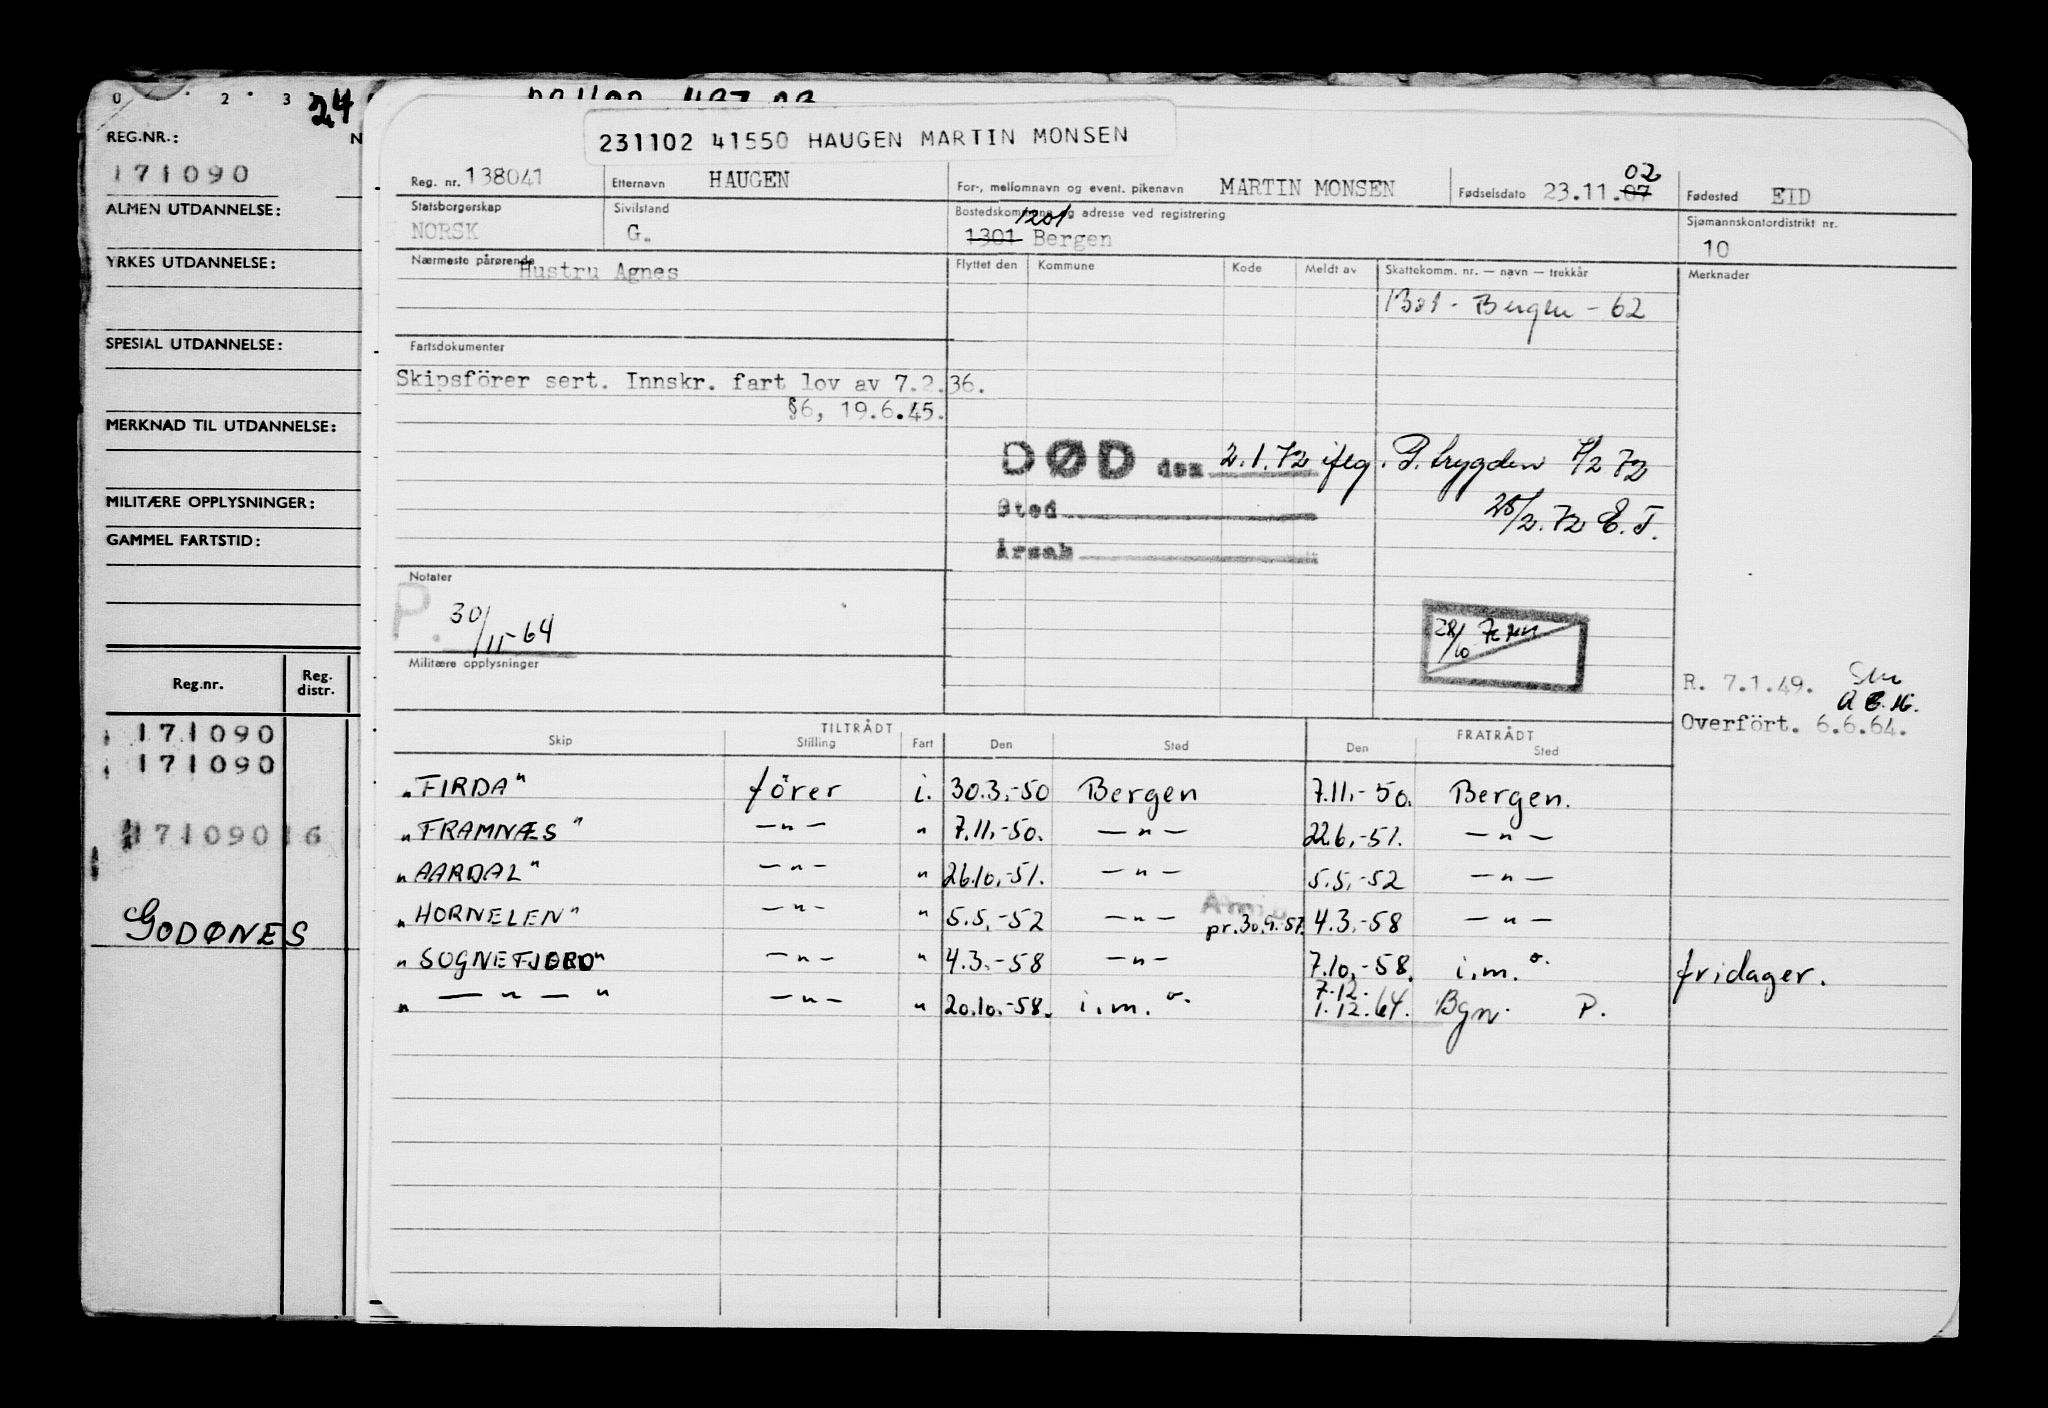 0 2 3 24
REG.NR.:
171090
ALMEN UTDANNELSE:
YRKES UTDANNELSE:
SPESIAL UTDANNELSE:
MERKNAD TIL UTDANNELSE:
MILITÆRE OPPLYSNINGER:
GAMMEL FARTSTID:
Reg.nr. Reg. distr.
171090
171090
171090 16
GODØNES
231102 41550 HAUGEN MARTIN MONSEN
Reg. nr. 138041 Etternavn HAUGEN For-, mellomnavn og event. pikenavn MARTIN MONSEN Fødselsdato 23.11.07 02 Fødested EID
Statsborgerskap NORSK Sivilstand G. Bostedskommune og adresse ved registrering 1301 1201 Bergen Sjømannskontordistrikt nr. 10
Nærmeste pårørende Hustru Agnes Flyttet den Kommune Kode Meldt av Skattekomm. nr. — navn — trekkår Merknader
1301 - Bergen - 62
Fartsdokumenter
Skipsförer sert. Innskr. fart lov av 7.2.36.
§6, 19.6.45.
DØD den 2.1.72 iflg. P.trygden 7/2 72
Sted 28/2.72 E.T.
Årsak
Notater
P. 30/11-64
28/10
Militære opplysninger
R. 7.1.49.
Overfört. 6.6.64.
TILTRÅDT FRATRÅDT
Skip Stilling Fart Den Sted Den Sted
"FIRDA" förer i. 30.3.-50 Bergen 7.11.-50. Bergen.
"FRAMNÆS" —"— " 7.11.-50. —"— 22.6.-51. —"—
"AARDAL" —"— " 26.10.-51. —"— 5.5.-52 —"—
"HORNELEN" —"— " 5.5.-52 —"— pr.30.9.57. 4.3.-58 —"—
"SOGNEFJORD" —"— " 4.3.-58 —"— 7.10.-58. i.m. o. fridager.
" —"— " —"— " 20.10.-58. i.m. o. 7.12. 1.12.64. Bgn. P.